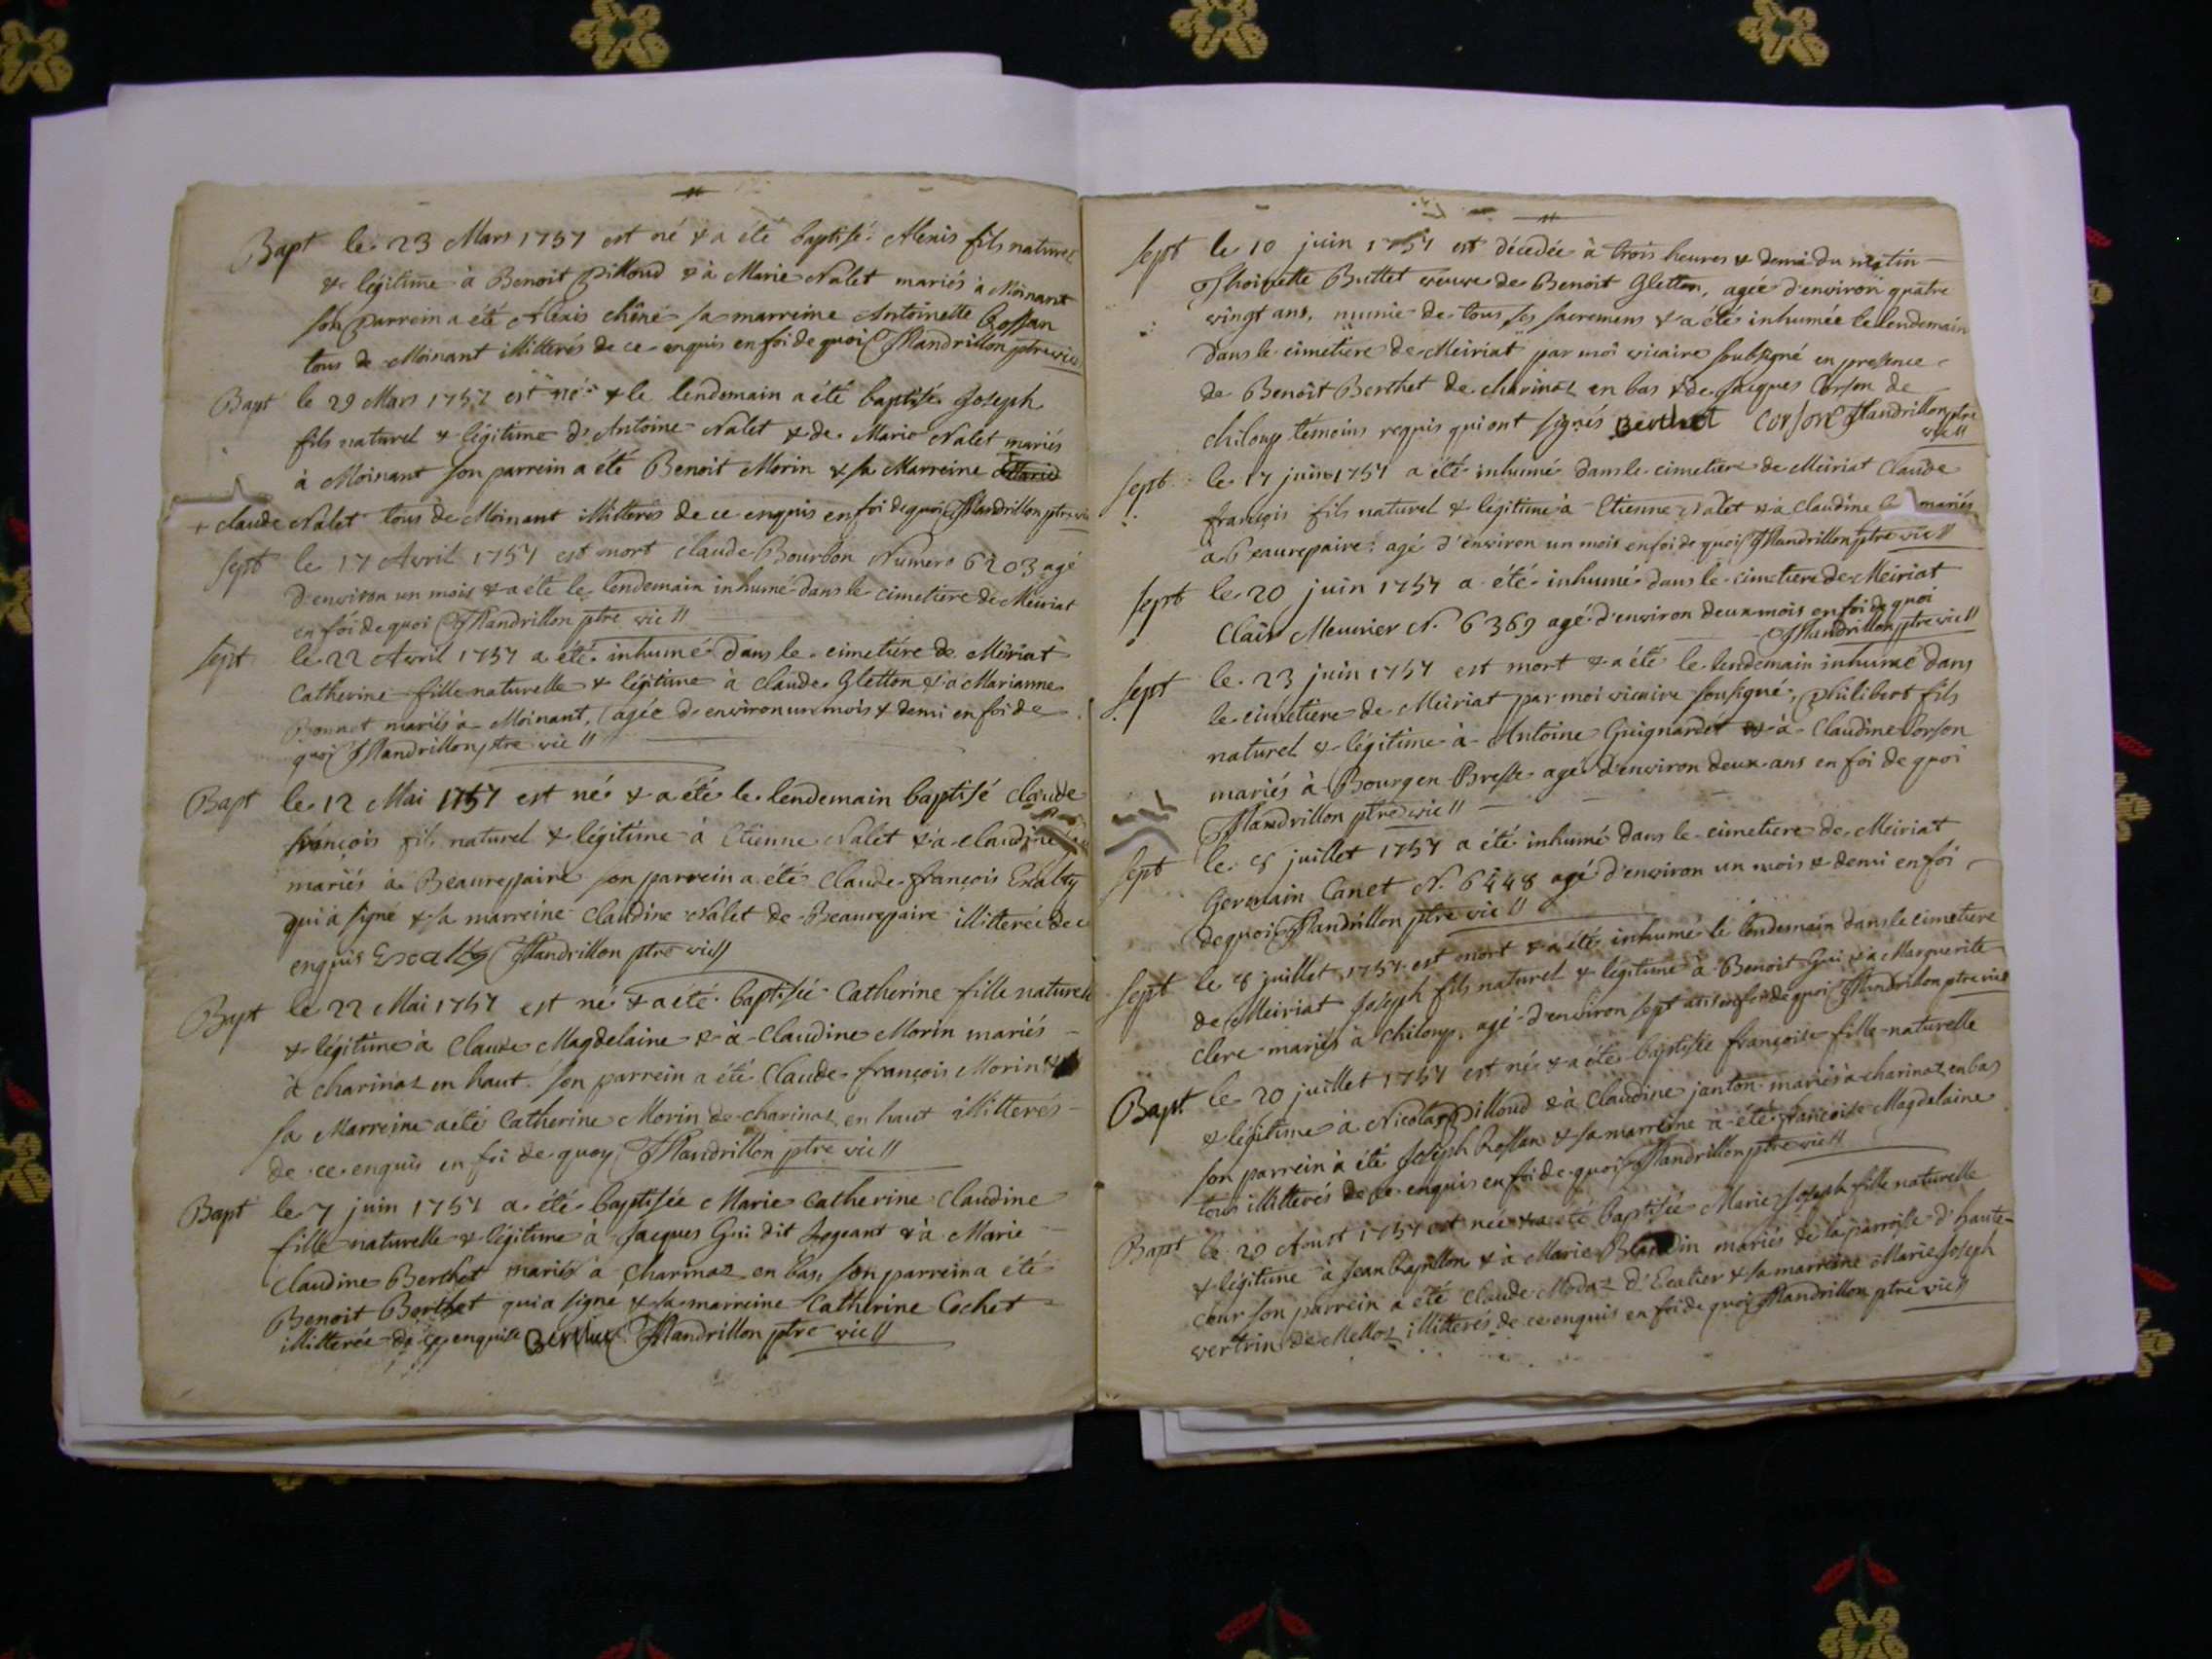 Bapt le 23 Mars 1757 est né & a été baptisé Alexis fils naturel
& légitime à Benoit Pilloud & à Marie Nalet mariés à Moinant
son parrein a été Alexis chêne sa marreine Antoinette Rossan
tous de Moinant illitterés de ce enquis en foi de quoi Mandrillon ptre vic
Bapt le 29 Mars 1757 est né & le lendemain a été baptisé Joseph
fils naturel & légitime d'Antoine Nalet & de Marie Nalet mariés
à Moinant son parrein a été Benoit Morin & sa Marreine
+ claude Nalet tous de Moinant illitterés de ce enquis en foi de quoi Mandrillon ptre vic
sept le 17 Avril 1757 est mort claude Bourbon Numero 6203 agé
d'environ un mois & a été le lendemain inhumé dans le cimetiere de Meiriat
en foi de quoi Mandrillon ptre vic //
sept le 22 Avril 1757 a été inhumé dans le cimetiére de Meiriat
Catherine fille naturelle & légitime à claude Gletton & à Marianne
Bonnet mariés à Moinant, agée d'environ un mois & demi en foi de
quoi Mandrillon ptre vic //
Bapt le 12 Mai 1757 est né & a été le lendemain baptisé claude
françois fils naturel & légitime à Etienne Nalet & à claudine
mariés à Beaurepaire son parrein a été claude françois Exalty
qui a signé & sa marreine claudine Nalet de Beaurepaire illitterée de ce
enquis Exalty Mandrillon ptre vic //
Bapt le 22 Mai 1757 est né & a été baptisée Catherine fille naturelle
& légitime à Claude Magdelaine & à Claudine Morin mariés
à charinaz en haut. son parrein a été Claude françois Morin &
sa Marreine a été Catherine Morin de charinaz en haut illitterés
de ce enquis en foi de quoy Mandrillon ptre vic //
Bapt le 7 juin 1757 a été baptisée Marie Catherine Claudine
fille naturelle & légitime à Jacques Gui dit Sergeant & à Marie
Claudine Berthet mariés à Charinaz en bas, son parrein a été
Benoit Berthet qui a signé & sa marreine Catherine Cochet
illitterée de ce enquise Berthet Mandrillon ptre vic //
sept le 10 juin 1757 est décedée à trois heures & demi du matin
Thoinette Buttet veuve de Benoit Gletton, agée d'environ quatre
vingt ans, munie de tous ses sacremens & a été inhumée le lendemain
dans le cimetiere de Meiriat par moi vicaire soubsigné en presence
de Benoit Berthet de charinaz en bas & de Jacques Corson de
chiloup témoins requis qui ont signés Berthet Corson Mandrillon ptre
vic //
sept le 17 juin 1757 a été inhumé dans le cimetiere de Meiriat Claude
françois fils naturel & légitime à Etienne Nalet & à Claudine mariés
à Beaurepaire agé d'environ un mois en foi de quoi Mandrillon ptre vic //
sept le 20 juin 1757 a été inhumé dans le cimetiere de Meiriat
Clair Meunier N. 6369 agé d'environ deux mois en foi de quoi
Mandrillon ptre vic //
sept le 23 juin 1757 est mort & a été le lendemain inhumé dans
le cimetiere de Meiriat par moi vicaire sousigné, philibert fils
naturel & légitime à Antoine Guignardet & à Claudine Corson
mariés à Bourg en Bresse agé d'environ deux ans en foi de quoi
Mandrillon ptre vic //
sept le 8 juillet 1757 a été inhumé dans le cimetiere de Meiriat
Germain Canet N. 6448 agé d'environ un mois & demi en foi
de quoi Mandrillon ptre vic //
sept le 8 juillet 1757 est mort & a été inhumé le lendemain dans le cimetiere
de Meiriat Joseph fils naturel & légitime à Benoit Gui & à Marguerite
Clerc mariés à Chiloup, agé d'environ sept ans en foi de quoi Mandrillon ptre vic
Bapt. le 20 juillet 1757 est né & a été baptisée françoise fille naturelle
& légitime à Nicolas Pilloud & à Claudine janton mariés à charinaz en bas
son parrein à été Joseph Rossan & sa marreine à été françoise Magdelaine
tous illitterés de ce enquis en foi de quoi Mandrillon ptre vic //
Bapt le 20 Aoust 1757 est née & a été baptisée Marie Joseph fille naturelle
& légitime à Jean Papillon & à Marie mariés de la parroisse d'haute-
cour son parrein a été Claude Modaz & sa marreine Marie Joseph
vertrin de Melloz illitterés de ce enquis en foi de quoi Mandrillon ptre vic //